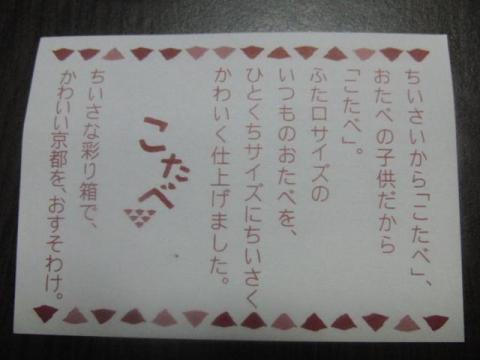 ちいさいから「こたべ」、
おたべの子供だから
「こたべ」。
ふた口サイズの
いつものおたべを、
ひとくちサイズにちいさく
かわいく仕上げました。
こたべ
ちいさな彩り箱で、
かわいい京都を、おすそわけ。